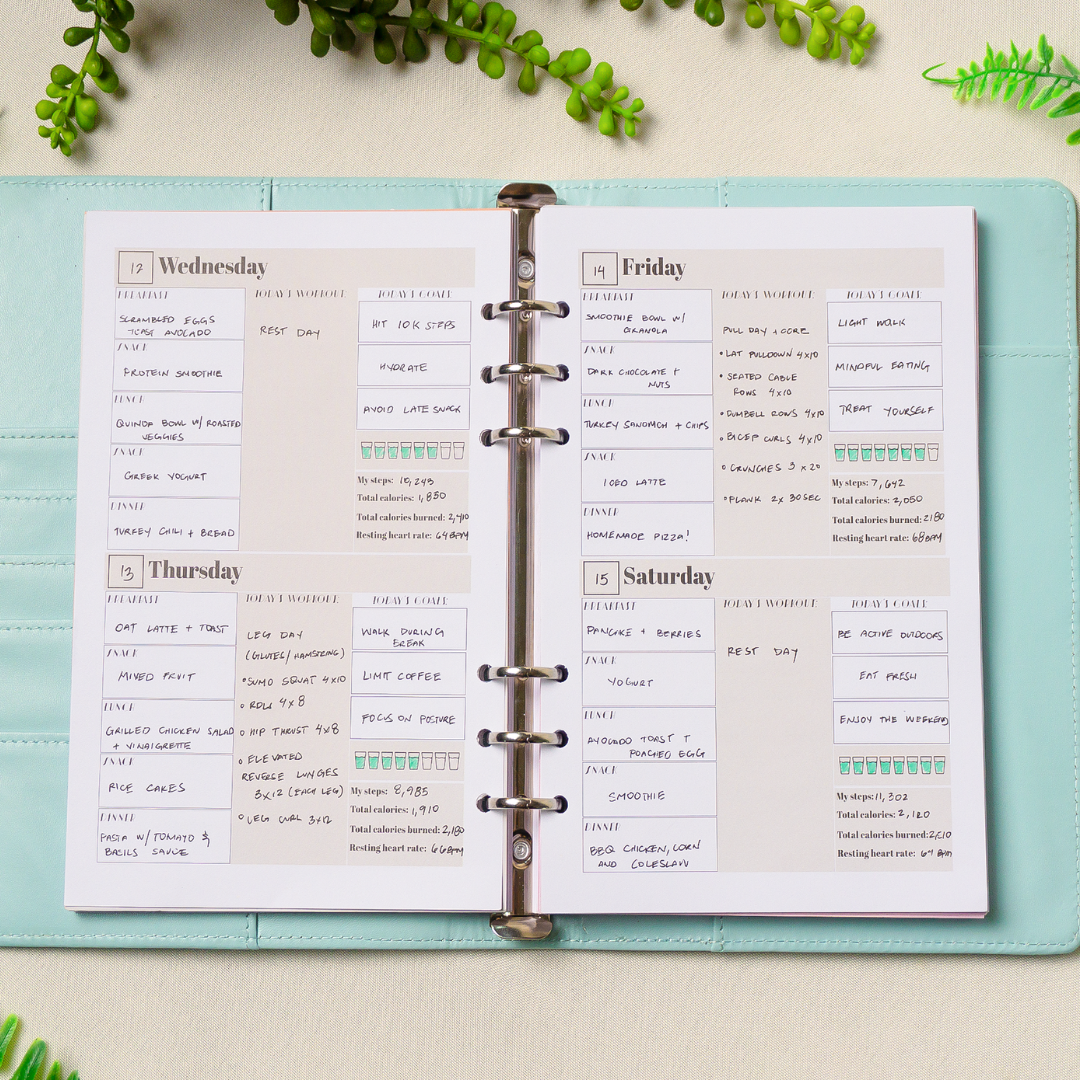 12 Wednesday
BREAKFAST
SCRAMBLED EGGS
TOAST AVOCADO
SNACK
PROTEIN SMOOTHIE
LUNCH
QUINOA BOWL W/ ROASTED
VEGGIES
SNACK
GREEK YOGURT
DINNER
TURKEY CHILI + BREAD
TODAY'S WORKOUT
REST DAY
TODAY'S GOALS
HIT 10K STEPS
HYDRATE
AVOID LATE SNACK
My steps: 10,243
Total calories: 1,850
Total calories burned: 2,410
Resting heart rate: 64 BPM
13 Thursday
BREAKFAST
OAT LATTE + TOAST
SNACK
MIXED FRUIT
LUNCH
GRILLED CHICKEN SALAD
+ VINAIGRETTE
SNACK
RICE CAKES
DINNER
PASTA W/ TOMAYO &
BASILS SAUCE
TODAY'S WORKOUT
LEG DAY
(GLUTES/ HAMSTRING)
• SUMO SQUAT 4x10
• RDLS 4x8
• HIP THRUST 4x8
• ELEVATED
REVERSE LUNGES
3x12 (EACH LEG)
• LEG CURL 3x12
TODAY'S GOALS
WALK DURING
BREAK
LIMIT COFFEE
FOCUS ON POSTURE
My steps: 8,985
Total calories: 1,910
Total calories burned: 2,180
Resting heart rate: 66 BPM
14 Friday
BREAKFAST
SMOOTHIE BOWL W/
GRANOLA
SNACK
DARK CHOCOLATE +
NUTS
LUNCH
TURKEY SANDWICH + CHIPS
SNACK
ICED LATTE
DINNER
HOMEMADE PIZZA!
TODAY'S WORKOUT
PULL DAY + CORE
• LAT PULLDOWN 4x10
• SEATED CABLE
ROWS 4x10
• DUMBELL ROWS 4x10
• BICEP CURLS 4x10
• CRUNCHES 3 x 20
• PLANK 2x 30SEC
TODAY'S GOALS
LIGHT WALK
MINDFUL EATING
TREAT YOURSELF
My steps: 7,642
Total calories: 2,050
Total calories burned: 2180
Resting heart rate: 68 BPM
15 Saturday
BREAKFAST
PANCAKE + BERRIES
SNACK
YOGURT
LUNCH
AVOCADO TOAST +
POACHED EGG
SNACK
SMOOTHIE
DINNER
BBQ CHICKEN, CORN
AND COLESLAW
TODAY'S WORKOUT
REST DAY
TODAY'S GOALS
BE ACTIVE OUTDOORS
EAT FRESH
ENJOY THE WEEKEND
My steps: 11,302
Total calories: 2,120
Total calories burned:
Resting heart rate: 64 BPM